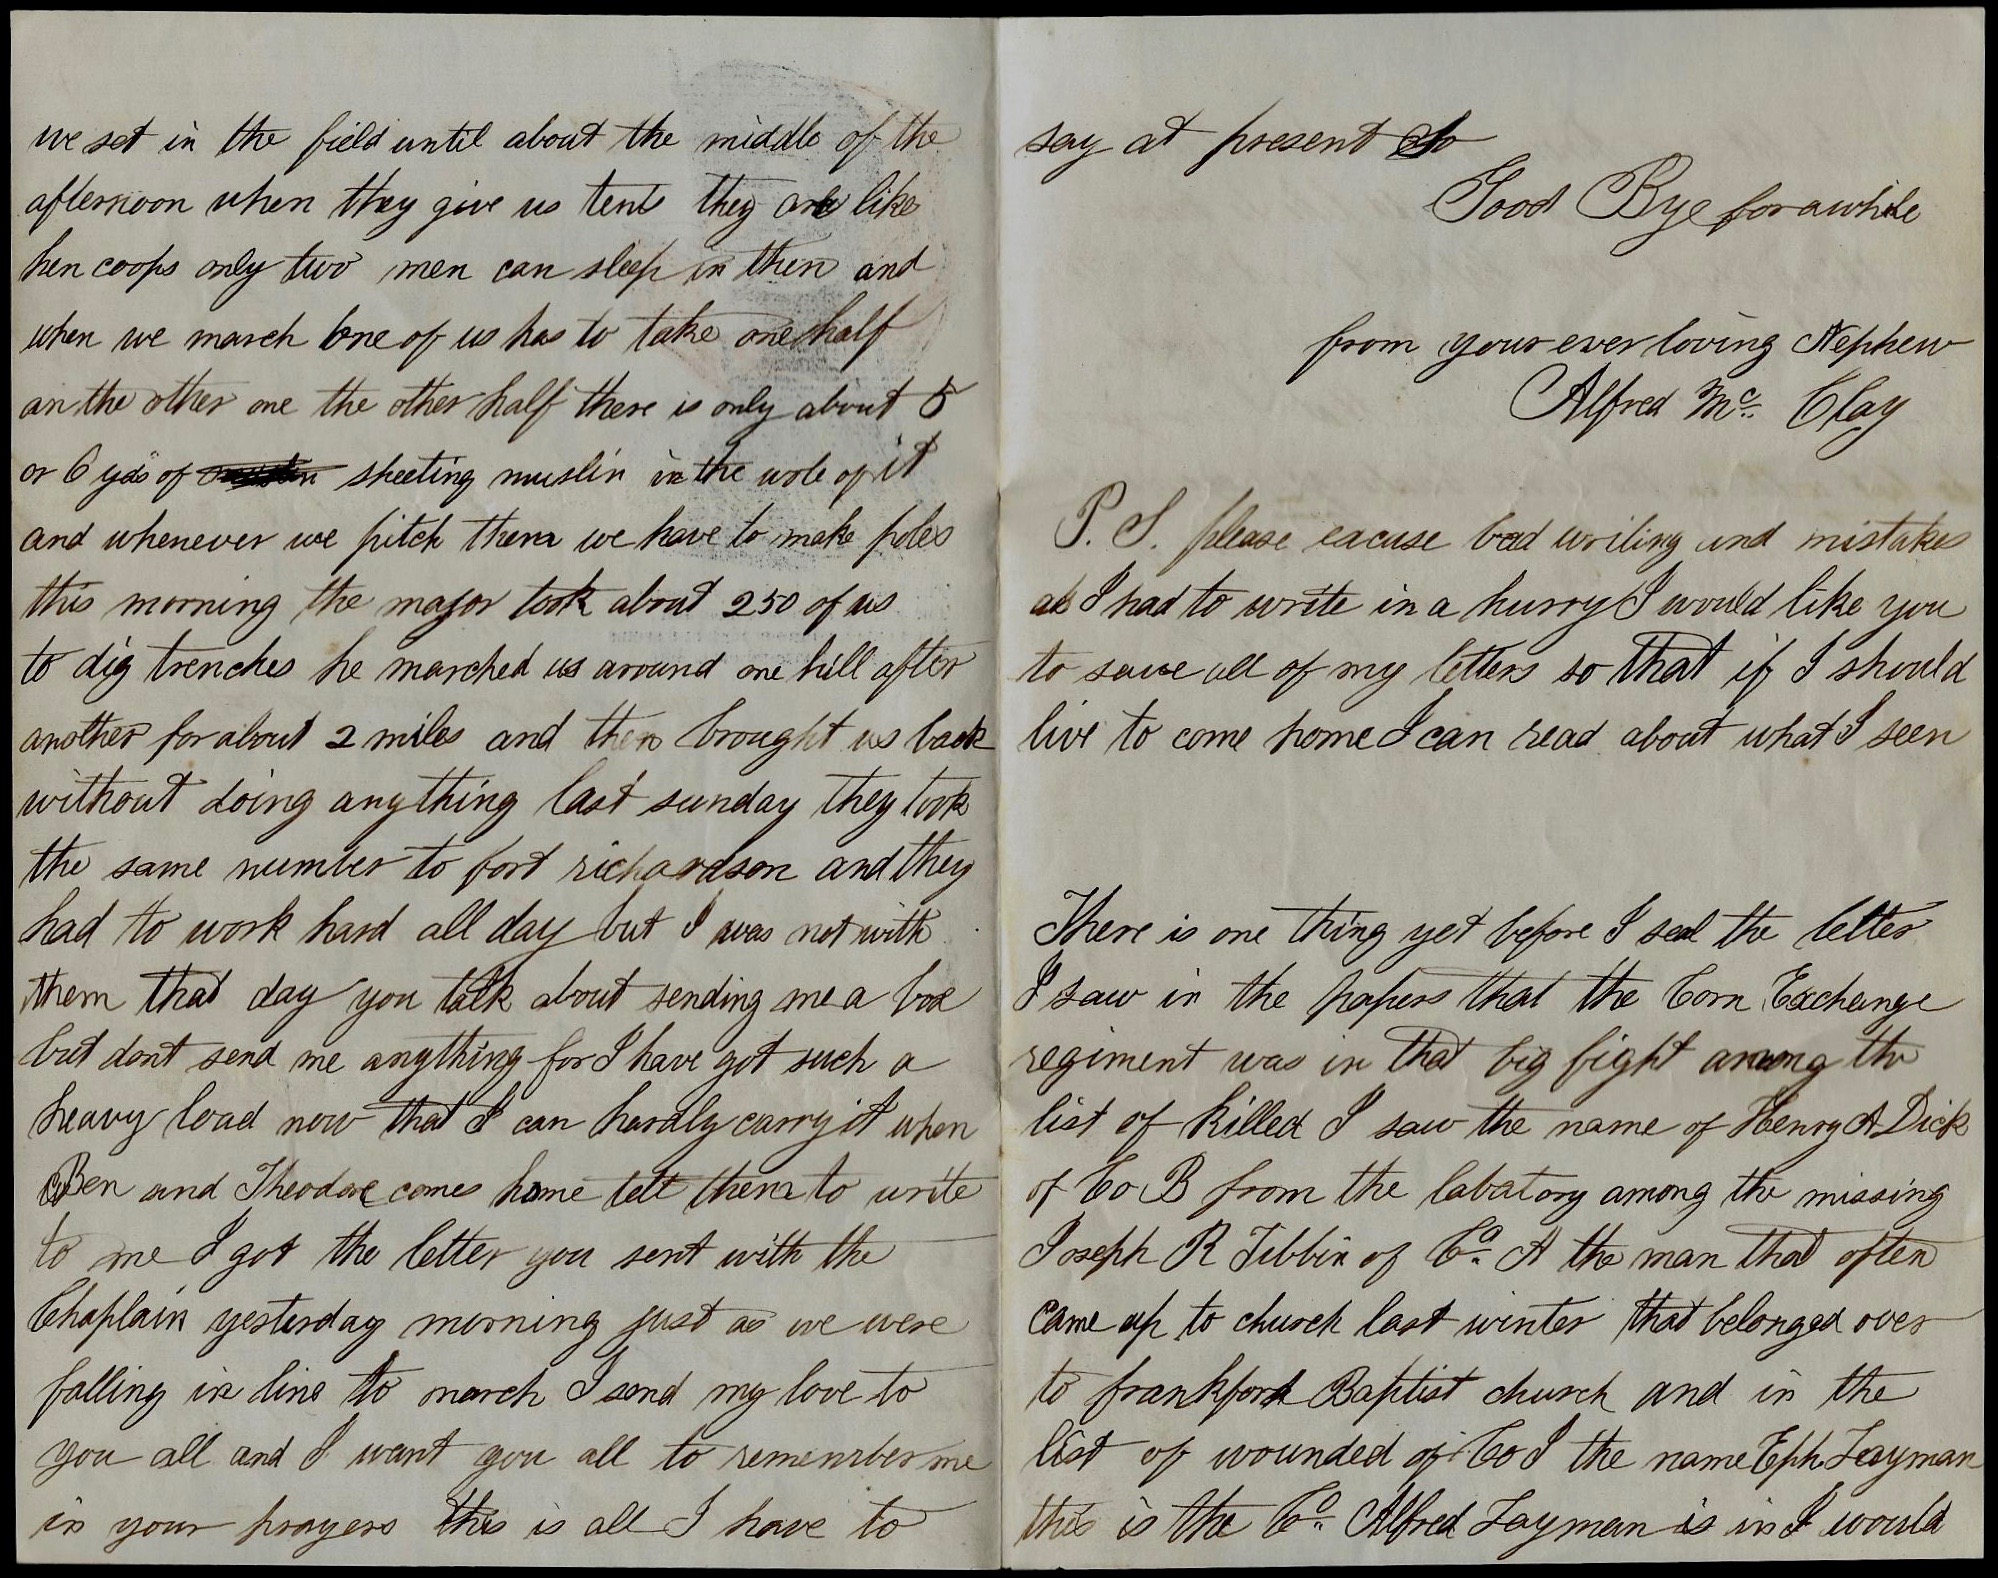 we set in the field until about the middle of the
afternoon when they give us tents they are like
hen coops only two men can sleep in them and
when we march one of us has to take one half
an the other one the other half there is only about 5
or 6 yds of sheeting muslin in the wole of it
and whenever we pitch them we have to make poles
this morning the major took about 250 of us
to dig trenches he marched us around one hill after
another for about 2 miles and then brought us back
without doing anything last sunday they took
the same number to fort richardson and they
had to work hard all day but I was not with
them that day you talk about sending me a box
but dont send me anything for I have got such a
heavy load now that I can hardly carry it when
Ben and Theodore comes home tell them to write
to me I got the letter you sent with the
Chaplain yesterday morning just as we were
falling in line to march I send my love to
you all and I want you all to remember me
in your prayers this is all I have to
say at present So
Good Bye for awhile
from your ever loving Nephew
Alfred Mc. Clay
P. S. please excuse bad writing and mistakes
as I had to write in a hurry I would like you
to save all of my letters so that if I should
live to come home I can read about what I seen
There is one thing yet before I seal the letter
I saw in the papers that the Corn Exchange
regiment was in that big fight among the
list of killed I saw the name of Henry A Dick
of Co B from the labatory among the missing
Joseph R Tibbin of Co. A the man that often
came up to church last winter that belonged over
to frankford Baptist church and in the
list of wounded of Co I the name Eph Layman
this is the Co. Alfred Layman is in I would